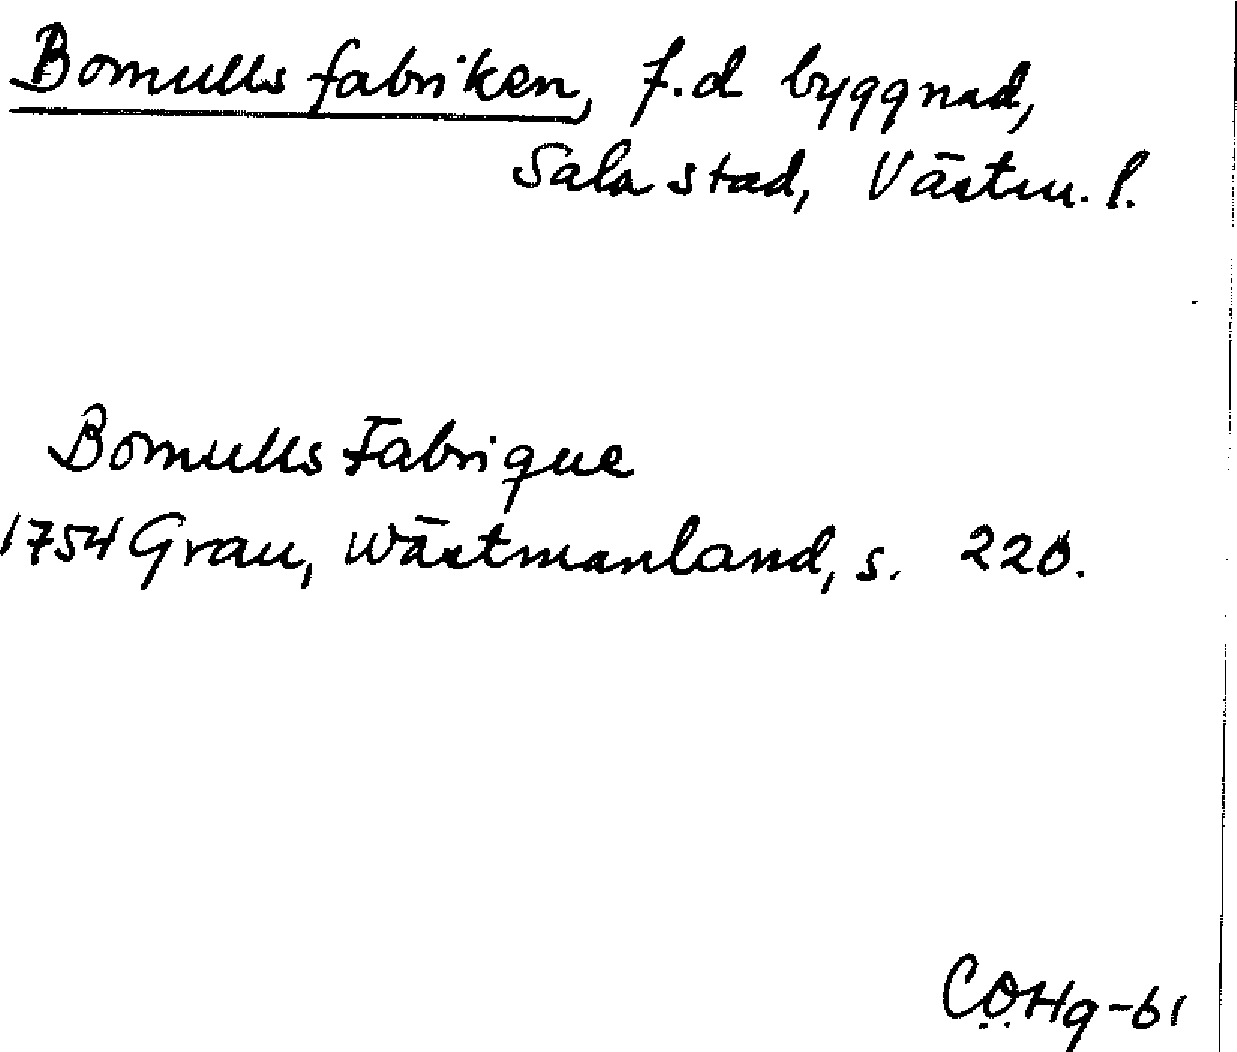 Bomullsfabriken, f.d byggnad,
Sala stad, Västm. l.
Bomulls Fabrique
1754 Grau, Wästmanland, s. 220.
CÖHg-61